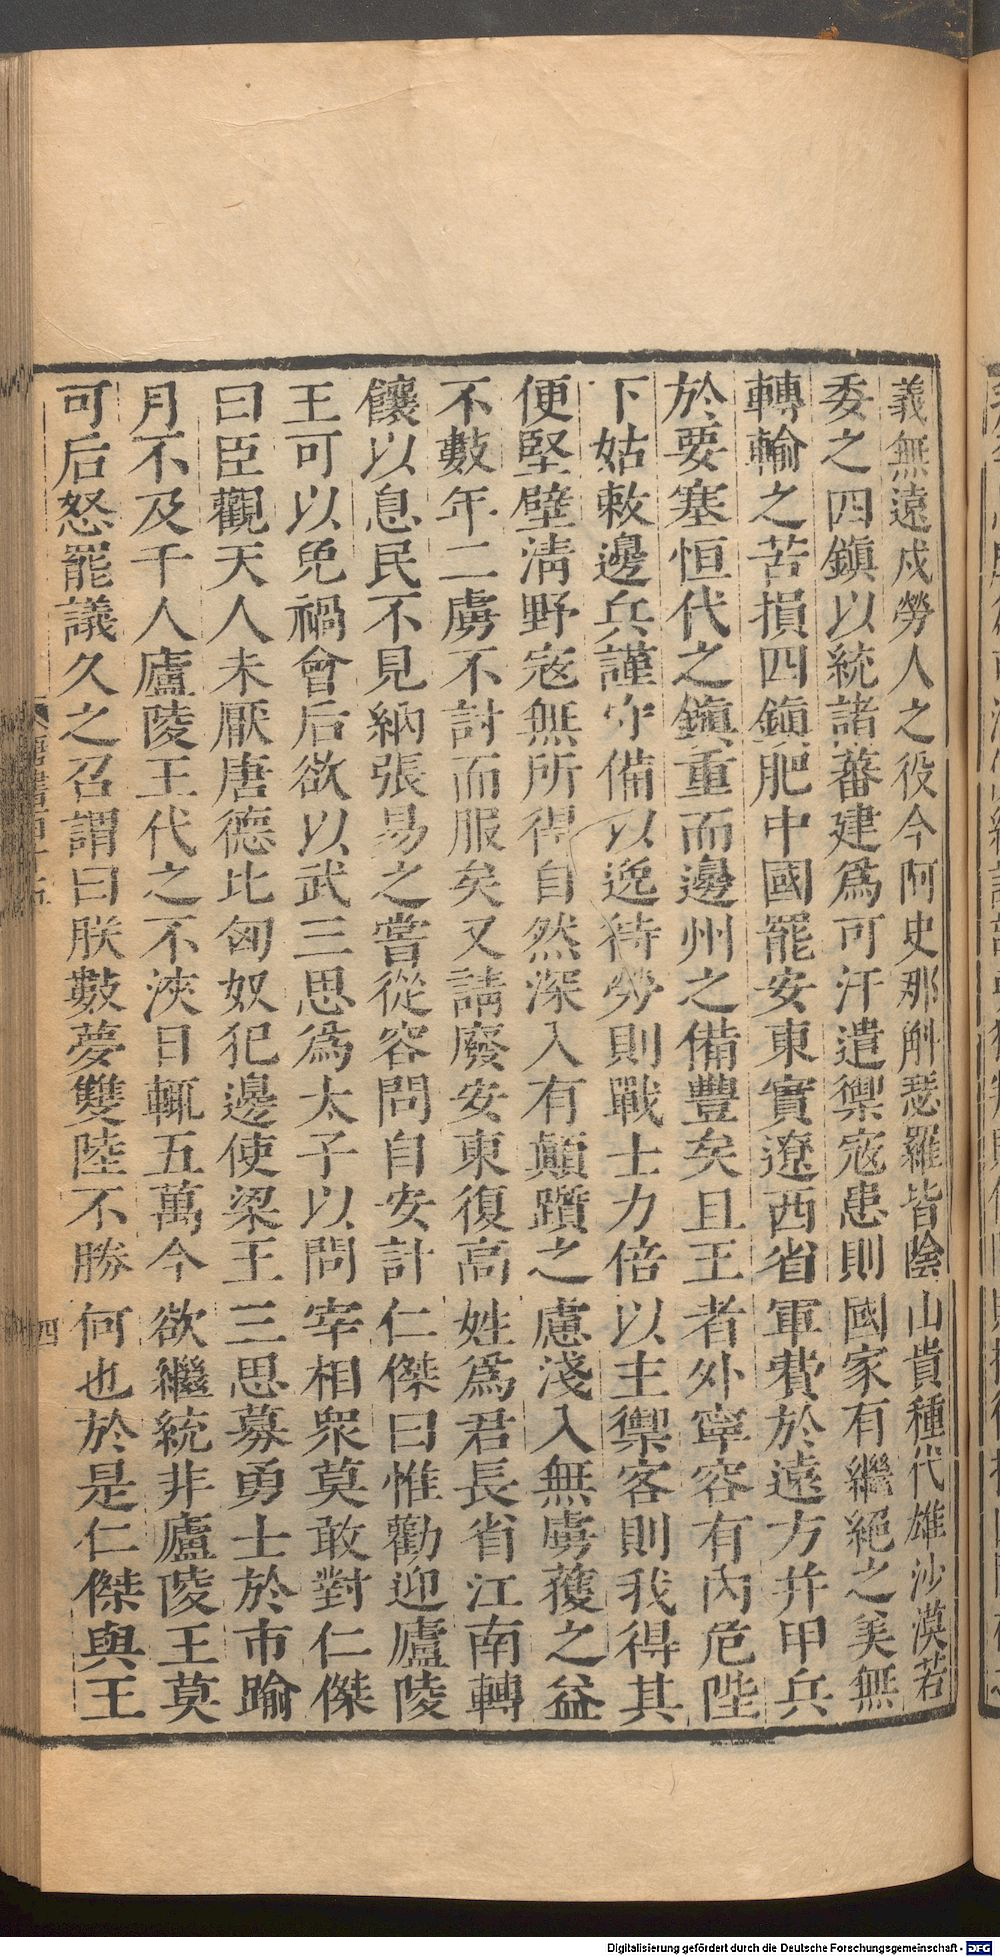 義無遠戍勞人之役今阿史那斛瑟羅皆陰山貴種代雄沙漠若
委之四鎮以統諸蕃建爲可汗遣禦寇患則國家有繼絕之美無
轉輸之苦損四鎮肥中國罷安東實遼西省軍費於遠方并甲兵
於要塞恒代之鎮重而邊州之備豐矣且王者外寧容有內危陛
下姑敕邊兵謹守備以逸待勞則戰士力倍以主禦客則我得其
便堅壁淸野寇無所得自然深入有顛躓之慮淺入無虜獲之益
不數年二虜不討而服矣又請廢安東復高姓爲君長省江南轉
饟以息民不見納張易之嘗從容問自安計仁傑曰惟勸迎廬陵
王可以免禍會后欲以武三思爲太子以問宰相衆莫敢對仁傑
曰臣觀天人未厭唐德比匈奴犯邊使梁王三思募勇士於市踰
月不及千人廬陵王代之不浹日輒五萬今欲繼統非廬陵王莫
可后怒罷議久之召謂曰朕數夢雙陸不勝何也於是仁傑與王
四
Digitalisierung gefördert durch die Deutsche Forschungsgemeinschaft - DFG